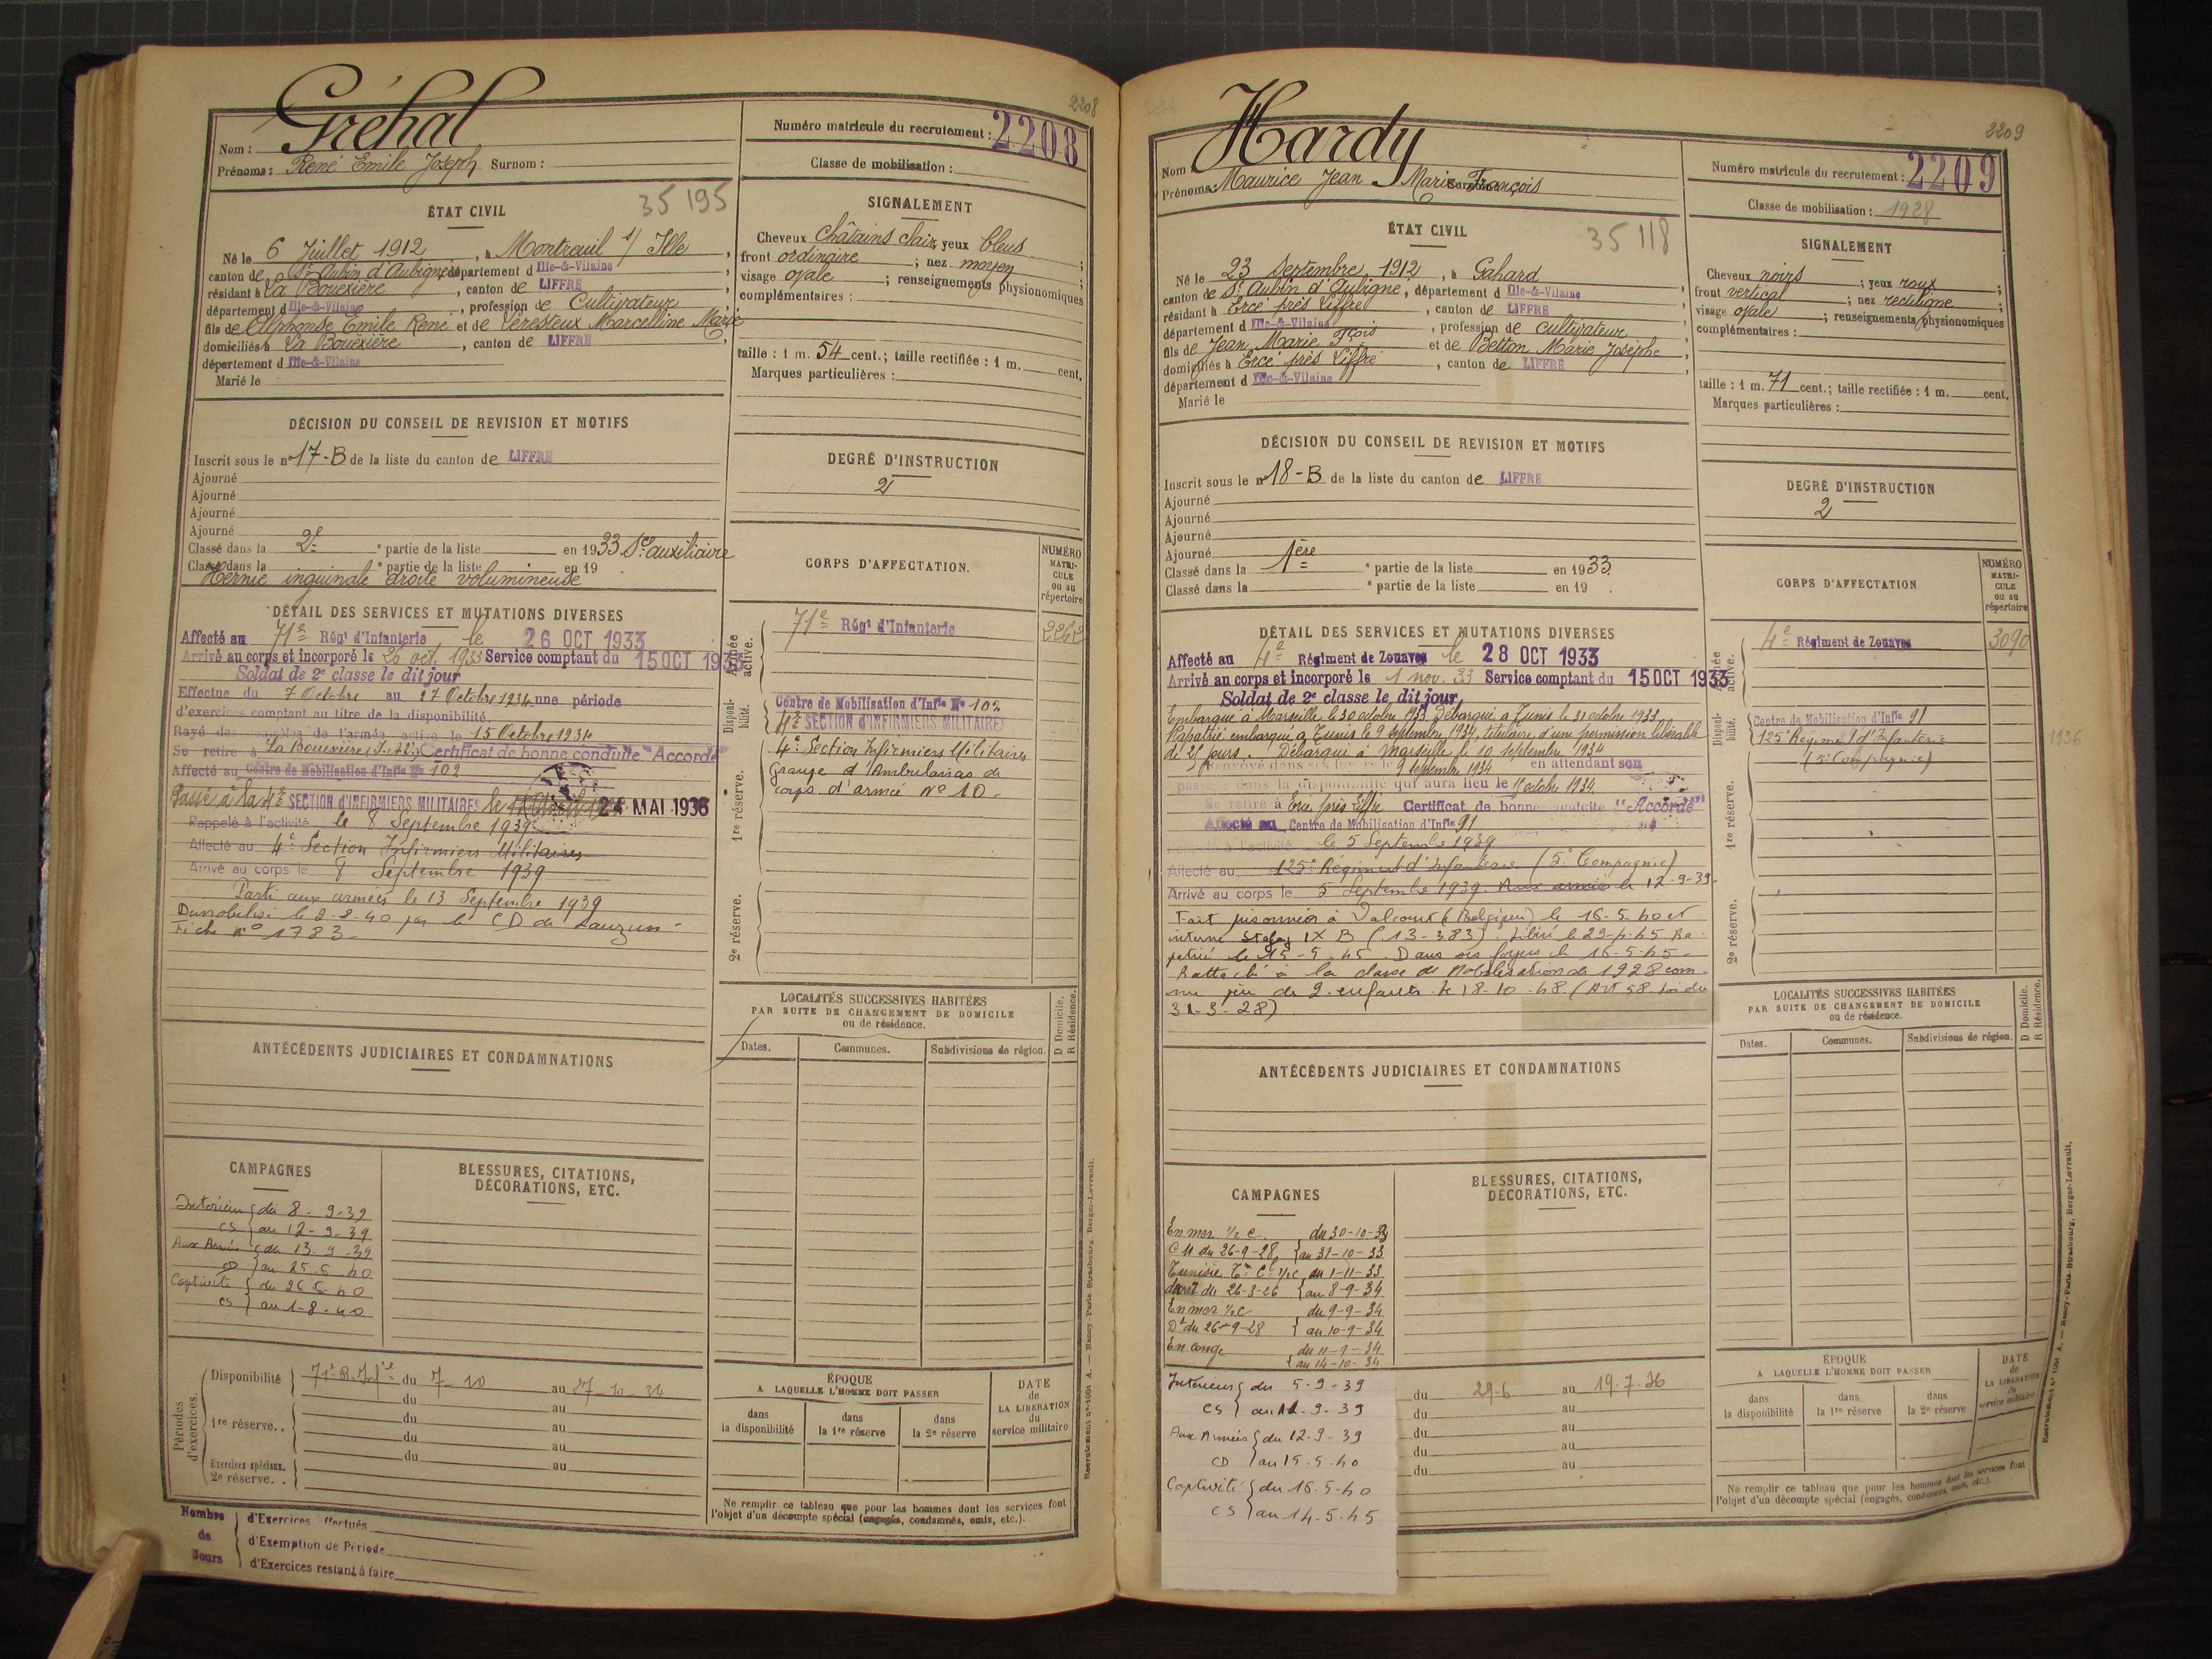 2208
Nom : Gréhal
Prénoms : René Emile Joseph Surnom :
Numéro matricule du recrutement : 2208
Classe de mobilisation :
35 195
ÉTAT CIVIL
Né le 6 Juillet 1912, à Montreuil s/ Ille,
canton de St Aubin d'Aubigné, département d Ille-&-Vilaine,
résidant à La Bouexière, canton de LIFFRÉ,
département d Ille-&-Vilaine, profession de Cultivateur
fils de Alphonse Emile René et de Léresteux Marcelline Marie
domiciliés à La Bouëxière, canton de LIFFRÉ,
département d Ille-&-Vilaine
Marié le
SIGNALEMENT
Cheveux châtains clair, yeux bleus ;
front ordinaire ; nez moyen ;
visage ovale ; renseignements physionomiques
complémentaires :
taille : 1 m. 54 cent.; taille rectifiée : 1 m. cent.
Marques particulières :
DÉCISION DU CONSEIL DE REVISION ET MOTIFS
Inscrit sous le n° 17-B de la liste du canton de LIFFRÉ
Ajourné
Ajourné
Ajourné
Ajourné
Classé dans la 2e partie de la liste en 1933 Sce auxiliaire
Classé dans la e partie de la liste en 19 .
Hernie inguinale droite volumineuse
DEGRÉ D'INSTRUCTION
2
DÉTAIL DES SERVICES ET MUTATIONS DIVERSES
Affecté au 71e Régt d'Infanterie le 26 OCT 1933
Arrivé au corps et incorporé le 26 oct. 1933 Service comptant du 15 OCT 1933
Soldat de 2e classe le dit jour
Effectue du 7 Octobre au 27 Octobre 1934 une période
d'exercices comptant au titre de la disponibilité.
Rayé des contrôles de l'armée active le 15 Octobre 1934
Se retire à La Bouexière (I.&V.) Certificat de bonne conduite "Accordé"
Affecté au Centre de Mobilisation d'Infie N° 102
Passé à la 4e SECTION d'INFIRMIERS MILITAIRES le 24 MAI 1936
Rappelé à l'activité le 8 Septembre 1939
Affecté au 4e Section Infirmiers Militaires
Arrivé au corps le 8 Septembre 1939
Parti aux armées le 13 Septembre 1939
Démobilisé le 2-8-40 par le CD de Lauzun
Fiche n° 1783
CORPS D'AFFECTATION.
NUMÉRO MATRICULE ou au répertoire
Armée active.
71e Régt d'Infanterie
Disponibilité.
Centre de Mobilisation d'Infie N° 102
4e SECTION d'INFIRMIERS MILITAIRES
1re réserve.
4e Section Infirmiers Militaires
Groupe d'Ambulances de
corps d'armée N° 10.
2e réserve.
LOCALITÉS SUCCESSIVES HABITÉES
PAR SUITE DE CHANGEMENT DE DOMICILE
ou de résidence.
D Domicile.
R Résidence.
Dates. Communes. Subdivisions de région.
ANTÉCÉDENTS JUDICIAIRES ET CONDAMNATIONS
CAMPAGNES
Intérieur du 8-9-39
CS au 12-9-39
Aux Armées du 13-9-39
CD au 25-6-40
Captivité du 26-6-40
CS au 1-8-40
BLESSURES, CITATIONS,
DÉCORATIONS, ETC.
Périodes d'exercices.
Disponibilité 71e R. Infie du 7-10 au 27-10-34
du au
1re réserve. . du au
du au
Exercices spéciaux. du au
2e réserve. .
ÉPOQUE
A LAQUELLE L'HOMME DOIT PASSER
dans la disponibilité
dans la 1re réserve
dans la 2e réserve
DATE de LA LIBÉRATION du service militaire
Ne remplir ce tableau que pour les hommes dont les services font
l'objet d'un décompte spécial (engagés, condamnés, omis, etc.).
Nombre de Jours
d'Exercices effectués
d'Exemption de Période
d'Exercices restant à faire
Recrutement n° 1001 A. — Nancy-Paris-Strasbourg, Berger-Levrault.
2209
Nom : Hardy
Prénoms : Maurice Jean Marie François
Numéro matricule du recrutement : 2209
Classe de mobilisation : 1928
35 118
ÉTAT CIVIL
Né le 23 Septembre 1912, à Gahard
canton de St Aubin d'Aubigné, département d Ille-&-Vilaine
résidant à Ercé près Liffré, canton de LIFFRÉ
département d Ille-&-Vilaine, profession de cultivateur
fils de Jean Marie Fçois et de Betton Marie Josèphe
domiciliés à Ercé près Liffré, canton de LIFFRÉ
département d Ille-&-Vilaine
Marié le
SIGNALEMENT
Cheveux noirs ; yeux roux ;
front vertical ; nez rectiligne ;
visage ovale ; renseignements physionomiques
complémentaires :
taille : 1 m. 71 cent.; taille rectifiée : 1 m. cent.
Marques particulières :
DÉCISION DU CONSEIL DE REVISION ET MOTIFS
Inscrit sous le n° 18-B de la liste du canton de LIFFRÉ
Ajourné
Ajourné
Ajourné
Ajourné
Classé dans la 1ère partie de la liste en 1933.
Classé dans la e partie de la liste en 19 .
DEGRÉ D'INSTRUCTION
2
DÉTAIL DES SERVICES ET MUTATIONS DIVERSES
Affecté au 4e Régiment de Zouaves le 28 OCT 1933
Arrivé au corps et incorporé le 1 nov. 33 Service comptant du 15 OCT 1933
Soldat de 2e classe le dit jour
Embarqué à Marseille le 30 octobre 1933 Débarqué à Tunis le 31 octobre 1933
Rapatrié embarqué à Tunis le 9 septembre 1934, titulaire d'une permission libérable
de 35 jours. Débarqué à Marseille le 10 septembre 1934
Renvoyé dans ses foyers le 9 septembre 1934 en attendant son
passage dans la disponibilité qui aura lieu le 15 octobre 1934
Se retire à Ercé près Liffré Certificat de bonne conduite "Accordé"
Affecté au Centre de Mobilisation d'Infie 91
Rappelé à l'activité le 5 Septembre 1939
Affecté au 125e Régiment d'Infanterie (5e Compagnie)
Arrivé au corps le 5 Septembre 1939. Aux armées le 12-9-39
Fait prisonnier à Valcourt (Belgique) le 16-5-40 et
interné Stalag IX B (13-383). Libéré le 29-4-45 Ra-
patrié le 15-5-45. Dans ses foyers le 16-5-45.
Rattaché à la classe de Mobilisation de 1928 com-
me père de 2 enfants le 18-10-48 (Art 58. Loi du
31-3-28)
CORPS D'AFFECTATION
NUMÉRO MATRICULE ou au répertoire
Armée active.
4e Régiment de Zouaves 3090
Disponibilité.
Centre de Mobilisation d'Infie 91
125e Régiment d'Infanterie 1936
(5e Compagnie)
1re réserve.
2e réserve.
LOCALITÉS SUCCESSIVES HABITÉES
PAR SUITE DE CHANGEMENT DE DOMICILE
ou de résidence.
D Domicile.
R Résidence.
Dates. Communes. Subdivisions de région.
ANTÉCÉDENTS JUDICIAIRES ET CONDAMNATIONS
CAMPAGNES
En mer 1/2 C. du 30-10-33
C M du 26-9-28 au 31-10-33
Tunisie 1/2 C du 1-11-33
décret du 26-3-26 au 8-9-34
En mer 1/2 C du 9-9-34
Dt du 26-9-28 au 10-9-34
En congé du 11-9-34
au 14-10-34
Intérieur du 5-9-39
CS au 11-9-39
Aux Armées du 12-9-39
CD au 15-5-40
Captivité du 16-5-40
CS au 14-5-45
BLESSURES, CITATIONS,
DÉCORATIONS, ETC.
du 29-6 au 19-7-36
du au
du au
du au
du au
ÉPOQUE
A LAQUELLE L'HOMME DOIT PASSER
dans la disponibilité
dans la 1re réserve
dans la 2e réserve
DATE de LA LIBÉRATION du service militaire
Ne remplir ce tableau que pour les hommes dont les services font
l'objet d'un décompte spécial (engagés, condamnés, omis, etc.).
Recrutement n° 1001 A. — Nancy-Paris-Strasbourg, Berger-Levrault.